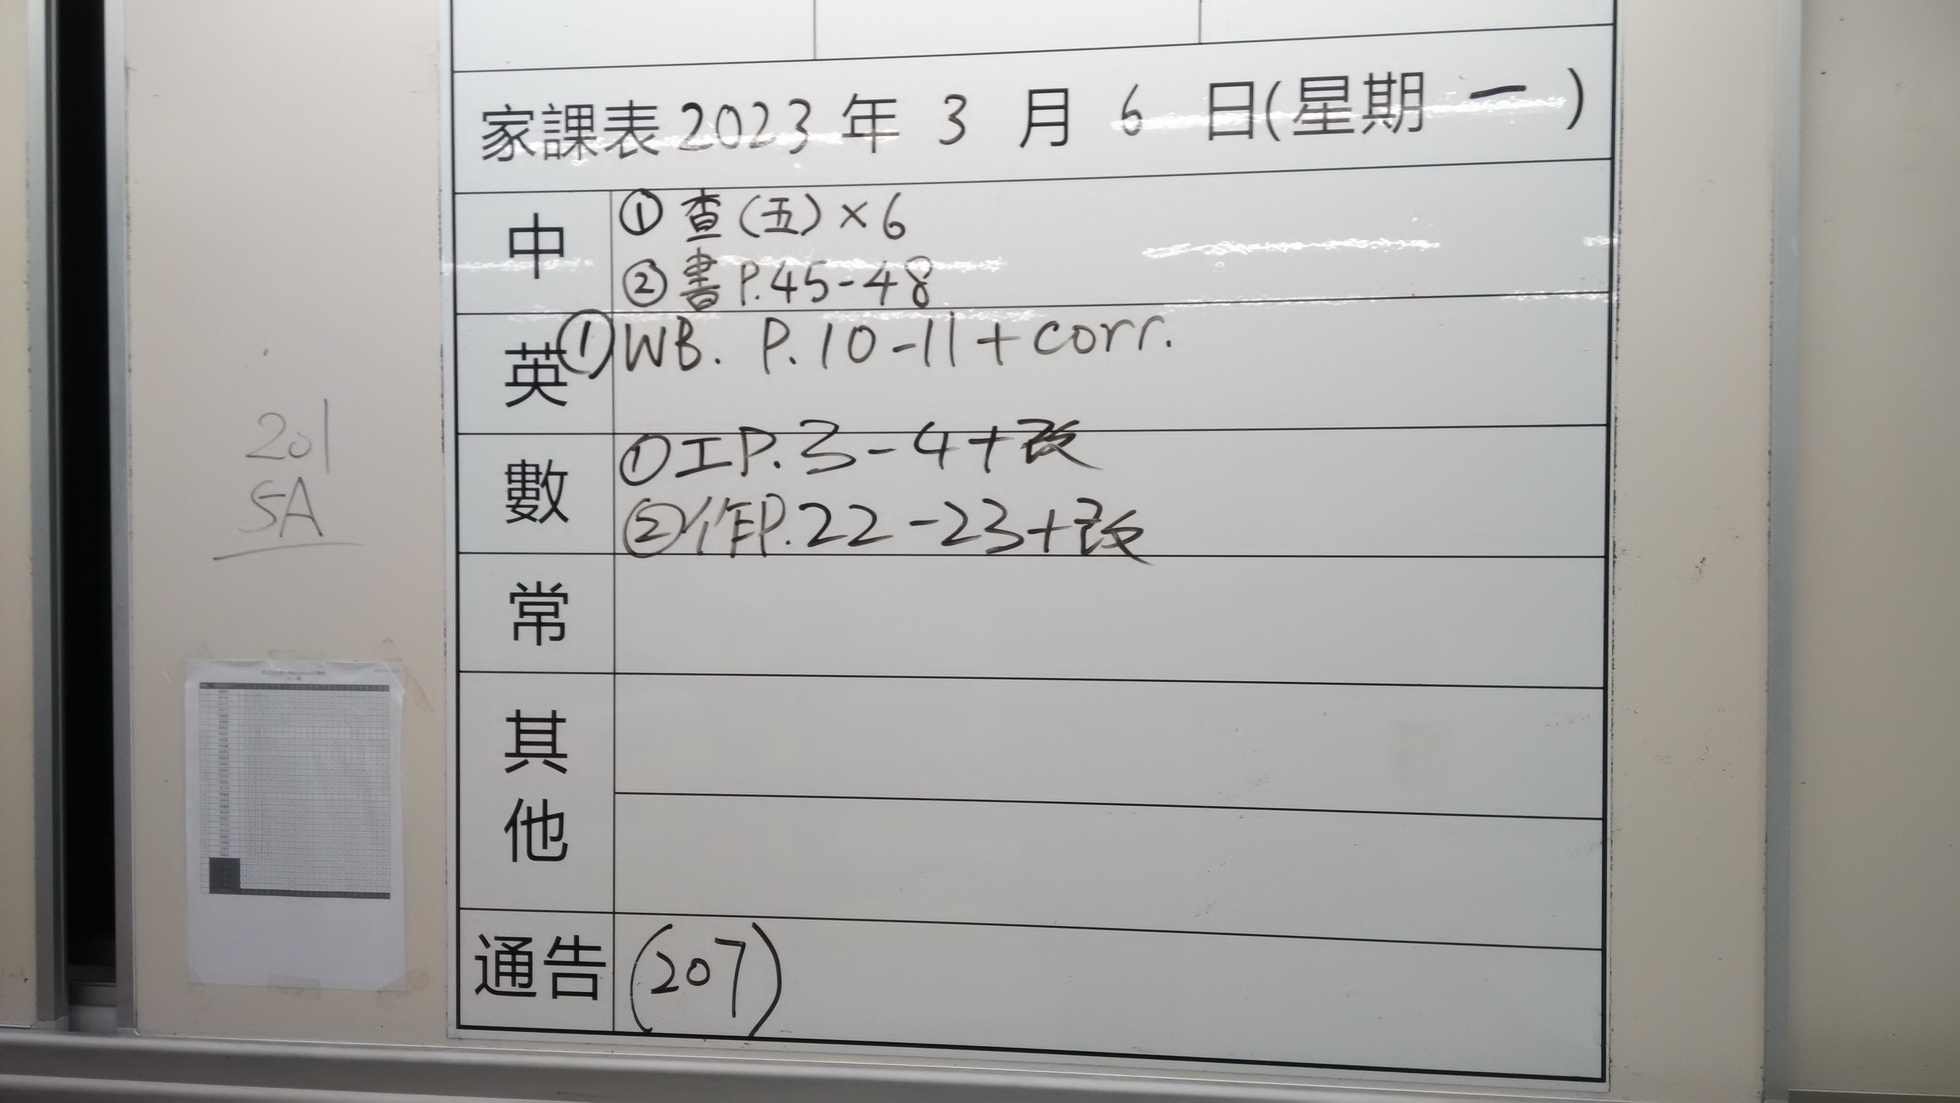 家課表 2023 年 3 月 6 日(星期 一 )
中
① 查(五)×6
② 書 P.45-48
英
① WB. P.10-11+corr.
數
①工P.3-4+改
②作P.22-23+改
常
其他
通告
(207)
201
5A